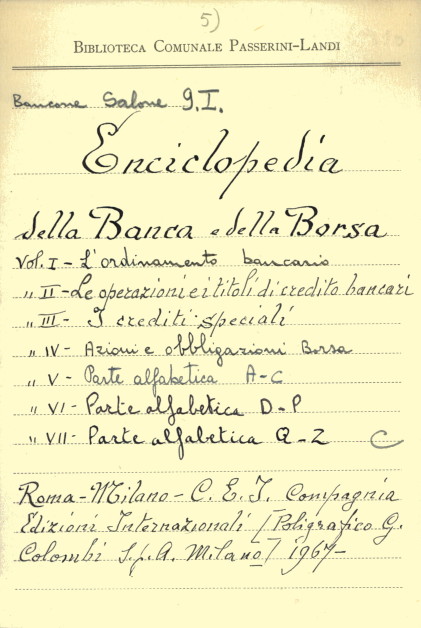 5)
BIBLIOTECA COMUNALE PASSERINI-LANDI
Bancone Salone 9.I.
Enciclopedia
della Banca e della Borsa
Vol. I - L'ordinamento bancario
" II - Le operazioni e i titoli di credito bancari
" III - I crediti speciali
" IV - Azioni e obbligazioni Borsa
" V - Parte alfabetica A-C
" VI - Parte alfabetica D-P
" VII - Parte alfabetica Q-Z
Roma-Milano - C. E. I. Compagnia
Edizioni Internazionali [Poligrafico G.
Colombi S.p.A. Milano] 1967-